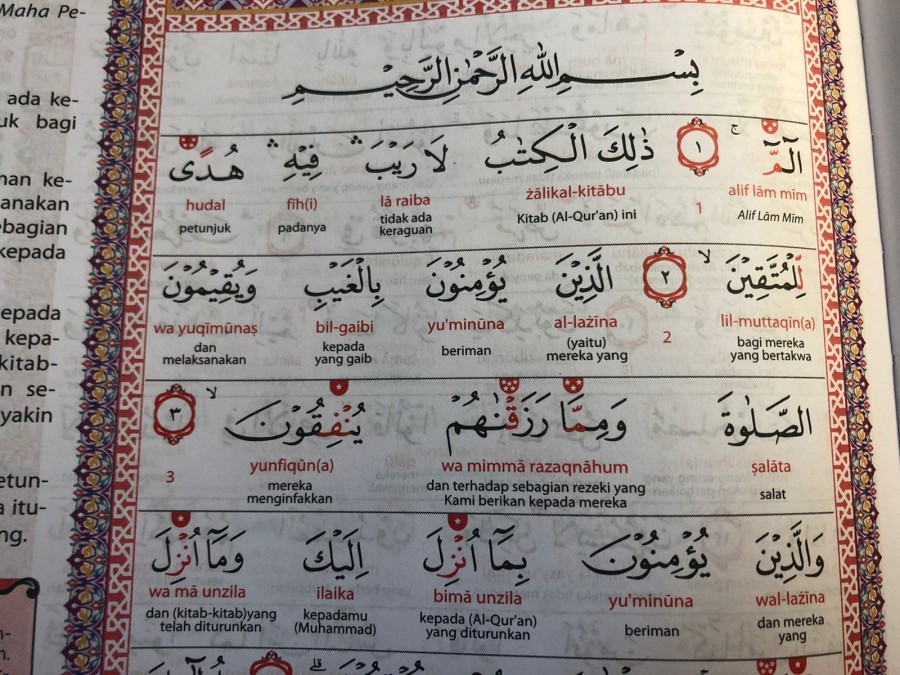 Maha Pe-
ada ke-
uk bagi
nan ke-
anakan
ebagian
kepada
epada
kepa-
kitab-
n se-
yakin
etun-
a itu-
ng.
بِسْمِ اللّٰهِ الرَّحْمٰنِ الرَّحِيْمِ
الۤمّۤ ۚ ١ ذٰلِكَ الْكِتٰبُ لَا رَيْبَ ۛ فِيْهِ ۛ هُدًى
alif lām mīm 1 żālikal-kitābu lā raiba fīh(i) hudal
Alif Lām Mīm Kitab (Al-Qur'an) ini tidak ada keraguan padanya petunjuk
لِّلْمُتَّقِيْنَ ۙ ٢ الَّذِيْنَ يُؤْمِنُوْنَ بِالْغَيْبِ وَيُقِيْمُوْنَ
lil-muttaqīn(a) 2 al-lażīna yu'minūna bil-gaibi wa yuqīmūnaṣ
bagi mereka yang bertakwa (yaitu) mereka yang beriman kepada yang gaib dan melaksanakan
الصَّلٰوةَ وَمِمَّا رَزَقْنٰهُمْ يُنْفِقُوْنَ ۙ ٣
ṣalāta wa mimmā razaqnāhum yunfiqūn(a) 3
salat dan terhadap sebagian rezeki yang Kami berikan kepada mereka mereka menginfakkan
وَالَّذِيْنَ يُؤْمِنُوْنَ بِمَآ اُنْزِلَ اِلَيْكَ وَمَآ اُنْزِلَ
wal-lażīna yu'minūna bimā unzila ilaika wa mā unzila
dan mereka yang beriman kepada (Al-Qur'an) yang diturunkan kepadamu (Muhammad) dan (kitab-kitab)yang telah diturunkan